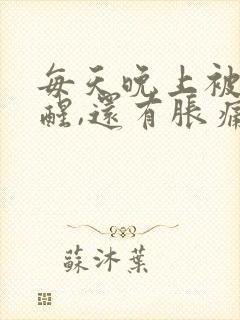 每天晚上被
醒,還有脹痛
蘇沐葉